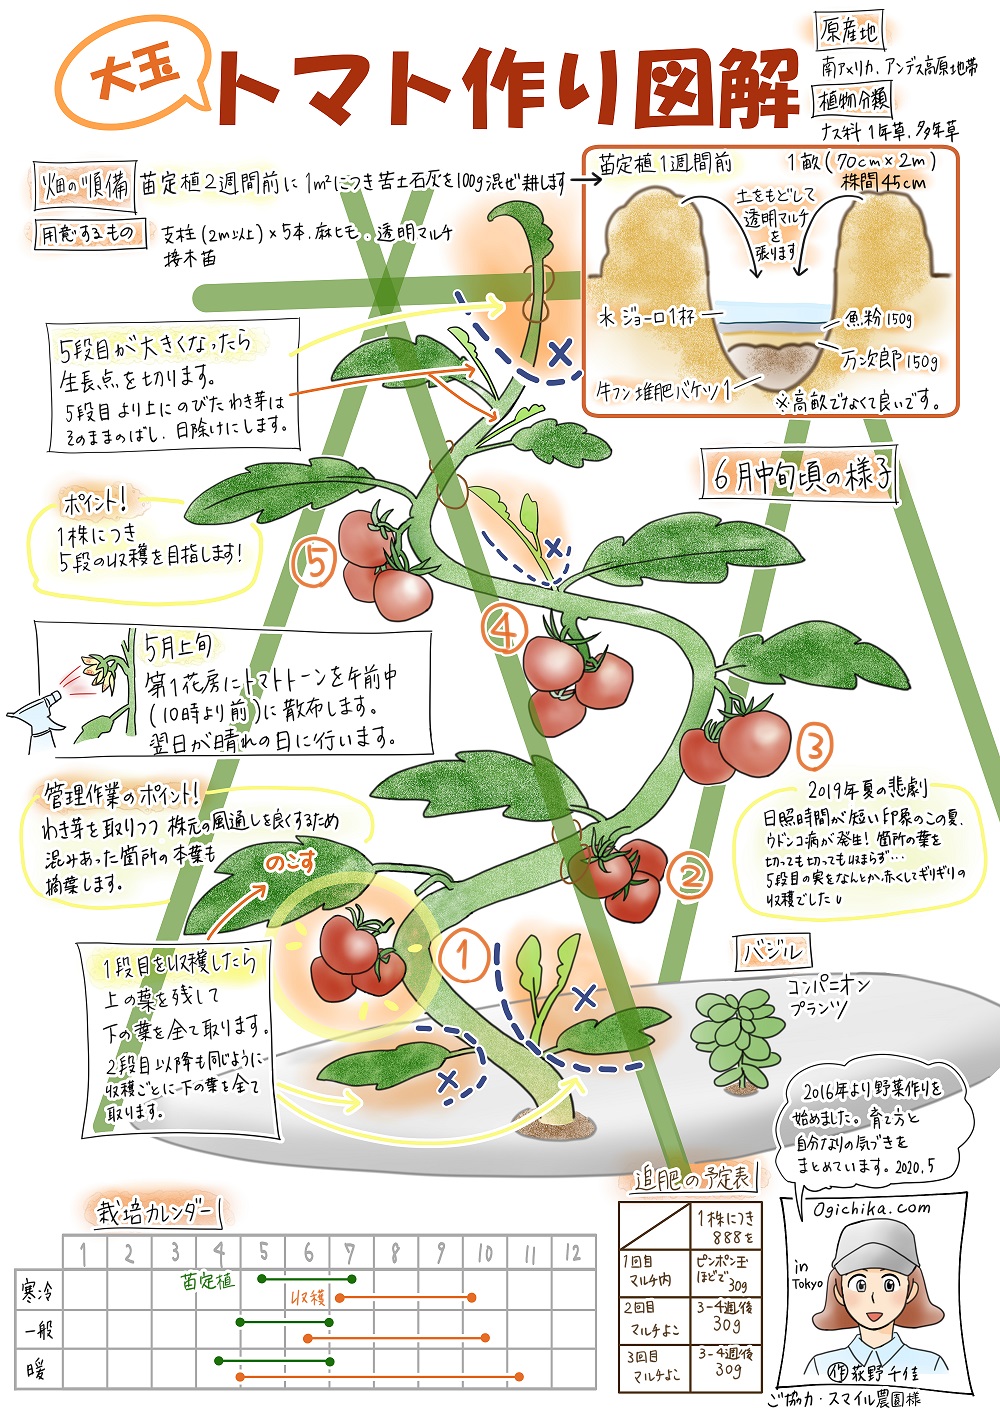 大玉
トマト作り図解
原産地
南アメリカ、アンデス高原地帯
植物分類
ナス科 1年草、多年草
畑の準備
苗定植2週間前に1m²につき苦土石灰を100g混ぜ耕します
用意するもの
支柱(2m以上)×5本、麻ヒモ、透明マルチ
接木苗
苗定植1週間前
1畝(70cm×2m)
株間45cm
土をもどして
透明マルチ
を
張ります
水 ジョーロ1杯
魚粉150g
万次郎150g
牛フン堆肥バケツ1
※高畝でなくて良いです。
5段目が大きくなったら
生長点を切ります。
5段目より上にのびたわき芽は
そのままのばし、日除けにします。
6月中旬頃の様子
ポイント!
1株につき
5段の収穫を目指します!
⑤
④
③
②
①
5月上旬
第1花房にトマトトーンを午前中
(10時より前)に散布します。
翌日が晴れの日に行います。
管理作業のポイント!
わき芽を取りつつ 株元の風通しを良くするため
混みあった箇所の本葉も
摘葉します。
のこす
2019年夏の悲劇
日照時間が短い印象のこの夏、
ウドンコ病が発生!箇所の葉を
切っても切っても収まらず…
5段目の実をなんとか赤くしてギリギリの
収穫でした
1段目を収穫したら
上の葉を残して
下の葉を全て取ります。
2段目以降も同じように
収穫ごとに下の葉を全て
取ります。
バジル
コンパニオン
プランツ
2016年より野菜作りを
始めました。育て方と
自分なりの気づきを
まとめています。2020.5
Ogichika.com
in
Tokyo
作 荻野千佳
ご協力・スマイル農園様
栽培カレンダー
1 2 3 4 5 6 7 8 9 10 11 12
苗定植
寒冷
収穫
一般
暖
追肥の予定表
1株につき
888を
1回目
マルチ内
ピンポン玉
ほどで
30g
2回目
マルチよこ
3-4週後
30g
3回目
マルチよこ
3-4週後
30g